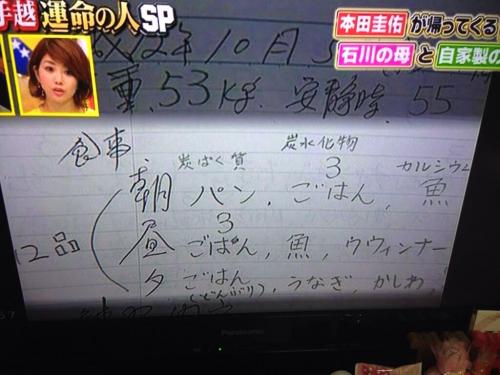 手越 運命の人SP
本田圭佑が帰ってくる
石川の母と自家製の
12年10月
重 53kg. 安静時. 55
食事. 炭ぱく質 炭水化物 カルシウム
3
朝 パン, ごはん, 魚
3
12品
昼 ごはん, 魚, ウウィンナー
夕 ごはん, うなぎ, かしわ,
(どんぶり)
Panasonic